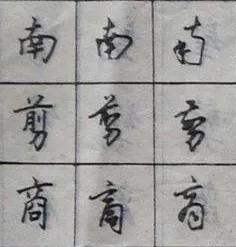 南南南
剪剪剪
商商商